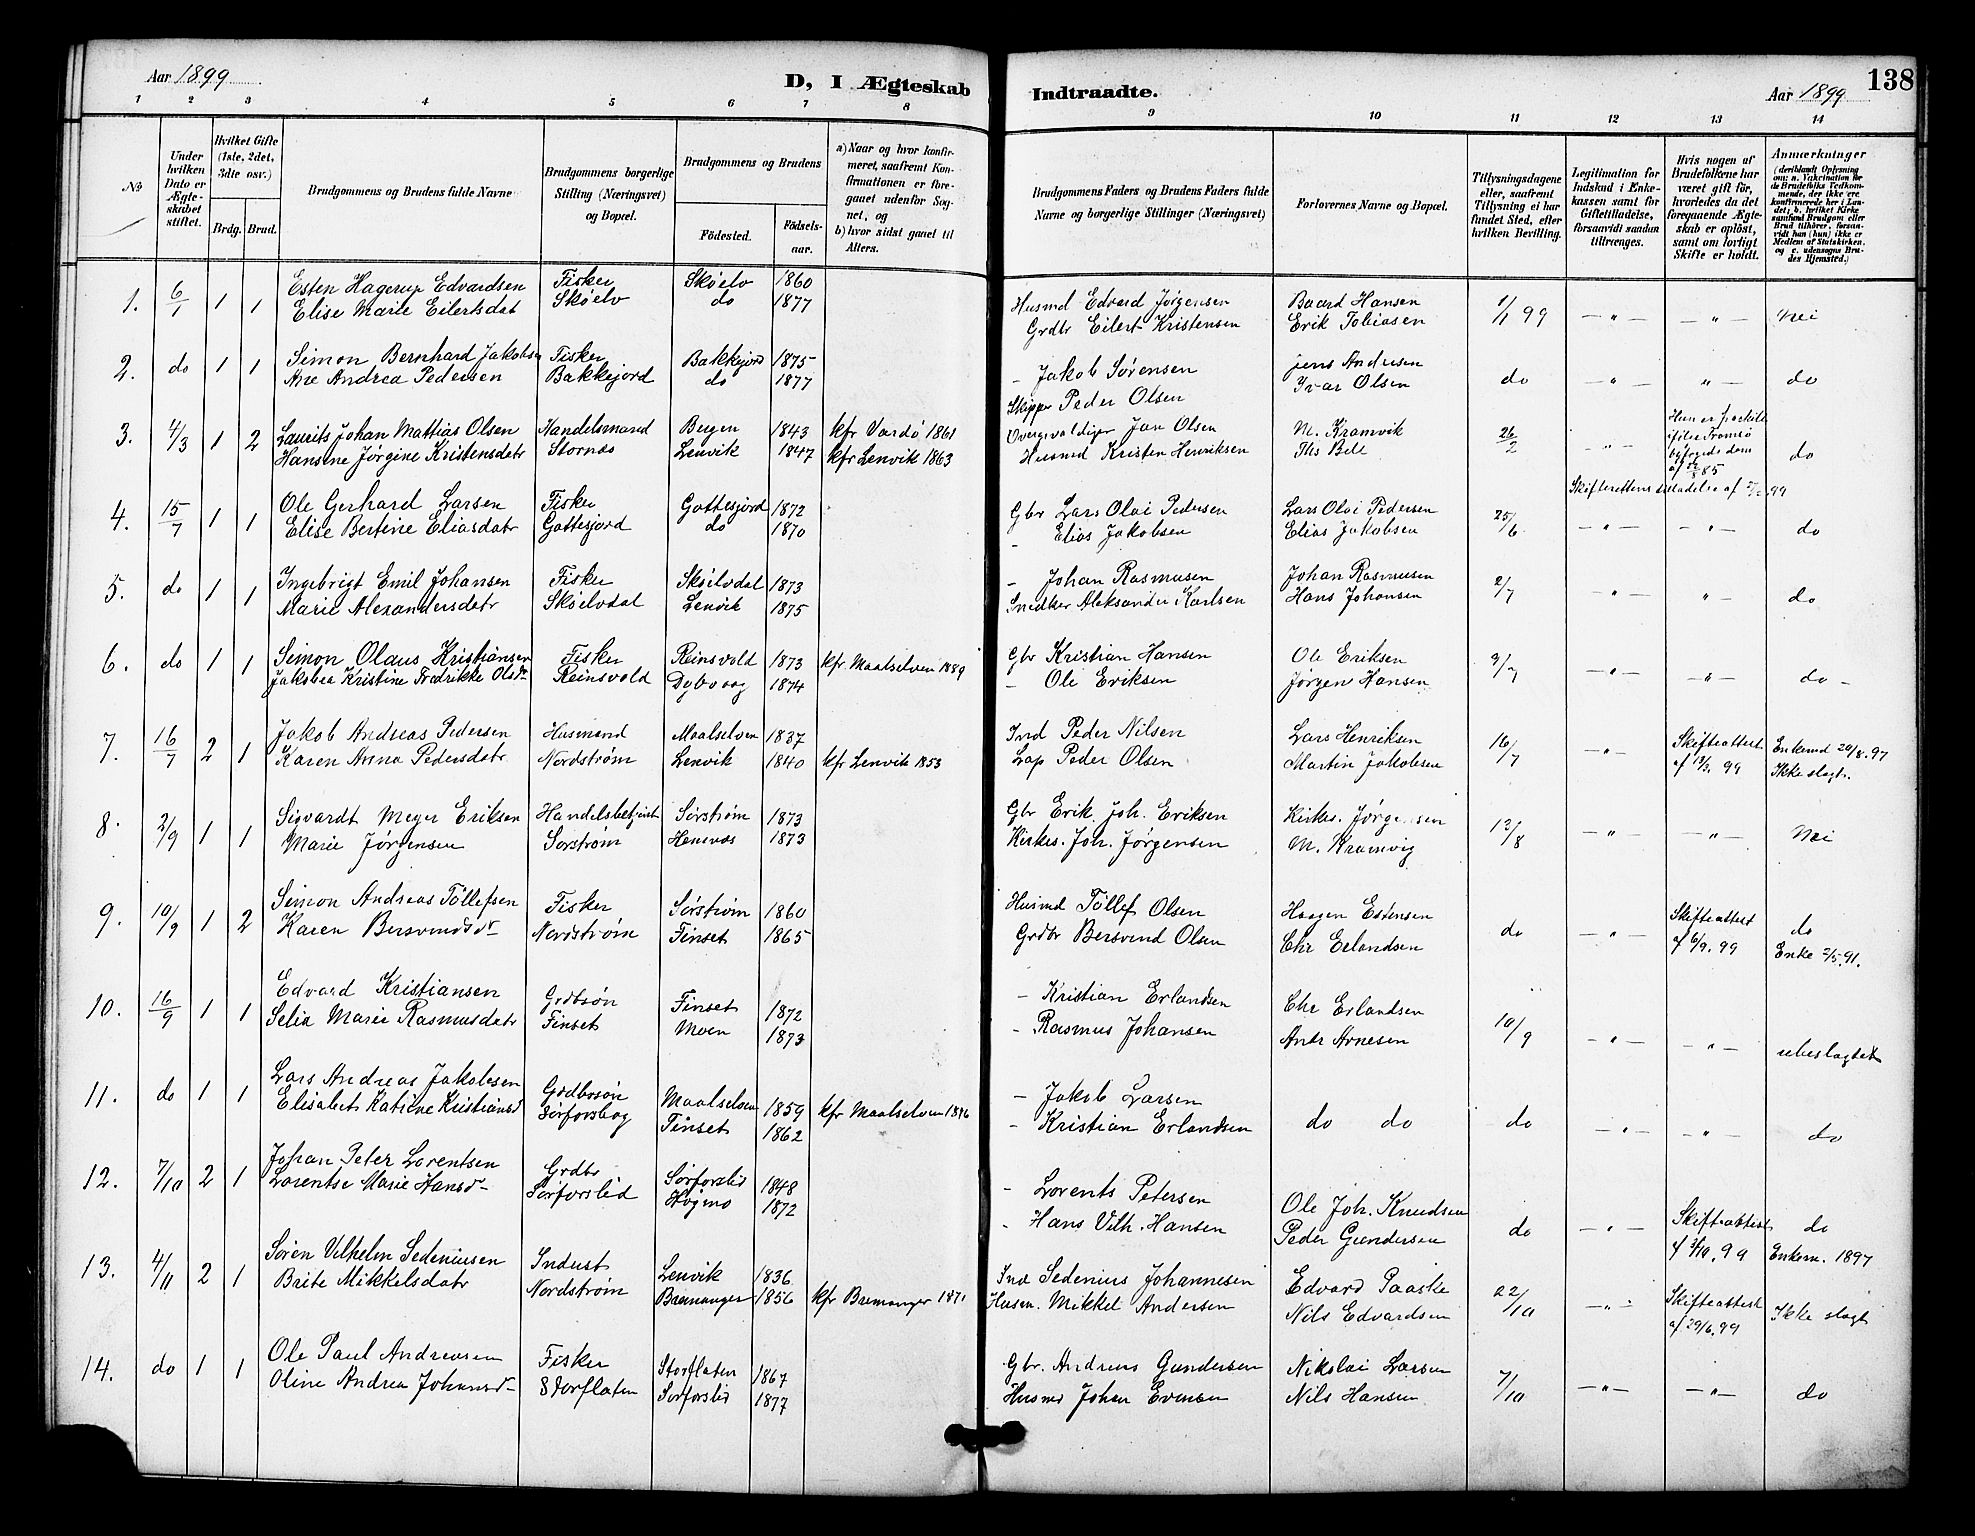 Aar 1899
D, I Ægteskab
Indtraadte.
Aar 1899
138
1 2 3 4 5 6 7 8 9 10 11 12 13 14
No
Under hvilken Dato er Ægteskabet stiftet.
Hvilket Gifte (1ste, 2det, 3dte osv.)
Brdg. Brud.
Brudgommens og Brudens fulde Navne
Brudgommens borgerlige Stilling (Næringsvei) og Bopæl.
Brudgommens og Brudens
Fødested. Fødselsaar.
a) Naar og hvor konfirmeret, saafremt Konfirmationen er foregaaet udenfor Sognet, og
b) hvor sidst gaaet til Alters.
Brudgommens Faders og Brudens Faders fulde Navne og borgerlige Stillinger (Næringsvei)
Forlovernes Navne og Bopæl.
Tillysningsdagene eller, saafremt Tillysning ei har fundet Sted, efter hvilken Bevilling.
Legitimation for Indskud i Enkekassen samt for Giftetilladelse, forsaavidt saadan tiltrænges.
Hvis nogen af Brudefolkene har været gift før, hvorledes da det foregaaende Ægteskab er opløst, samt om lovligt Skifte er holdt.
Anmærkninger (deriblandt Oplysning om: a. Vakcination for de Brudefolks Vedkommende, der ikke ere konfirmerede her i Landet; b. hvilket Kirkesamfund Brudgom eller Brud tilhører, forsaavidt han (hun) ikke er Medlem af Statskirken, og c. udensogns Brudes Hjemsted.)
1. 6/1 1 1 Esten Hagerup Edvardsen Fisker Skøelv 1860 Husmd Edvard Jørgensen Baard Hansen 1/1 99 — " — — " — nei
Elise Marie Eilertsdat Skøelv do 1877 Grdbr Eilert Kristensen Erik Tobiasen
2. do 1 1 Simon Bernhard Jakobsen Fisker Bakkejord 1875 - Jakob Sørensen Jens Andersen do — " — " — do
Ane Andrea Pedersen Bakkejord do 1877 Skipper Peder Olsen Ivar Olsen
3. 4/3 1 2 Laurits Johan Mathias Olsen Handelsmand Bergen 1843 kfr Vardø 1861 Jan Olsen M. Kramvik 26/2 " — Hun er fraskilt
Hansine Jørgine Kristensdatr Stornæs Lenvik 1847 kfr Lenvik 1863 Husmd Kristen Henriksen Ths Bell do
Skifterettens af 99
4. 15/7 1 1 Ole Gerhard Larsen Fisker Gottesjord 1872 Gbr Lars Olai Pedersen Lars Olai Pedersen 25/6 — " — — " — do
Elise Bertine Eliasdatr Gottesjord do 1870 - Elias Jakobsen Elias Jakobsen
5. do 1 1 Ingebrigt Emil Johansen Fisker Skøelvdal 1873 - Johan Rasmusen Johan Rasmusen 2/7 — " — " — do
Marie Alexandersdatr Skøelvdal Lenvik 1875 Snedker Aleksander Karlsen Hans Johansen
6. do 1 1 Simon Olaus Kristiansen Fisker Reinsvold 1873 kfr. Maalselven 1889 Gbr Kristian Hansen Ole Eriksen 9/7 — " — — " — do -
Jakobea Kristine Fredrikke Olsdr Reinsvold Dybvaag 1874 - Ole Eriksen Jørgen Hansen
7. 16/7 2 1 Jakob Andreas Pedersen Husmand Maalselven 1837 Ind Peder Nilsen Lars Henriksen 16/7 — " — Skifteattest Enkemd 20/8.97
Karen Anna Pedersdatr Nordstrøm Lenvik 1840 kfr Lenvik 1853 Lap Peder Olsen Martin Jakobsen af 13/3. 99 Ikke slægt.
8. 2/9 1 1 Sigvardt Meyer Eriksen Handelsbetjent Sørstrøm 1873 Gbr Erik Joh. Eriksen Kirkes. Jørgensen 13/8 — " — — " — Nei
Marie Jørgensen Sørstrøm 1873 Kirkes. Joh. Jørgensen M. Kramvig
9. 10/9 1 2 Simon Andreas Tollefsen Fisker Sørstrøm 1860 Husmd Tollef Olsen Haagen Estensen do — " — Skifteattest do
Karen Bersvendsdr Nordstrøm Finset 1865 Grdbr Bersvend Olsen Chr Erlandsen af 6/9. 99 Enke 2/5.91.
10. 16/9 1 1 Edvard Kristiansen Grdbsøn Finset 1872 - Kristian Erlandsen Chr Erlandsen 10/9 — " — — " — ubeslægtet
Selia Marie Rasmusdatr Finset Moen 1873 - Rasmus Johansen Andr Arnesen
11. do 1 1 Lars Andreas Jakobsen Grdbsøn Maalselven 1859 kfr Maalselven 1876 - Jakob Larsen do do do — " — — " — do
Elisabet Katrine Kristiansd Sørforsbog Finset 1862 - Kristian Erlandsen
12. 7/10 2 1 Johan Peter Lorentsen Grdbr Sørforslid 1848 - Lorents Petersen Ole Joh. Knudsen do — " — Skifteattest do
Lorentse Marie Hansd Sørforslid Høgmo 1872 - Hans Vilh. Hansen Peder Gundersen af 3/10. 99 Enkem. 1897
13. 4/11 2 1 Søren Vilhelm Sedeniusen Indust Lenvik 1836 Ind Sedenius Johannesen Edvard Paaske 22/10 — " — Skifteattest Ikke slægt
Brite Mikkelsdatr Nordstrøm Bremanger 1856 kfr Bremanger 1871 Husm. Mikkel Andersen Nils Edvardsen af 29/6. 99
14. do 1 1 Ole Paul Andreasen Fisker Storflaten 1867 Gbr. Andreas Gundersen Nikolai Larsen 7/10 — " — — " — do
Oline Andrea Johansd Storflaten Sørforslid 1877 Husmd Johan Evensen Nils Hansen